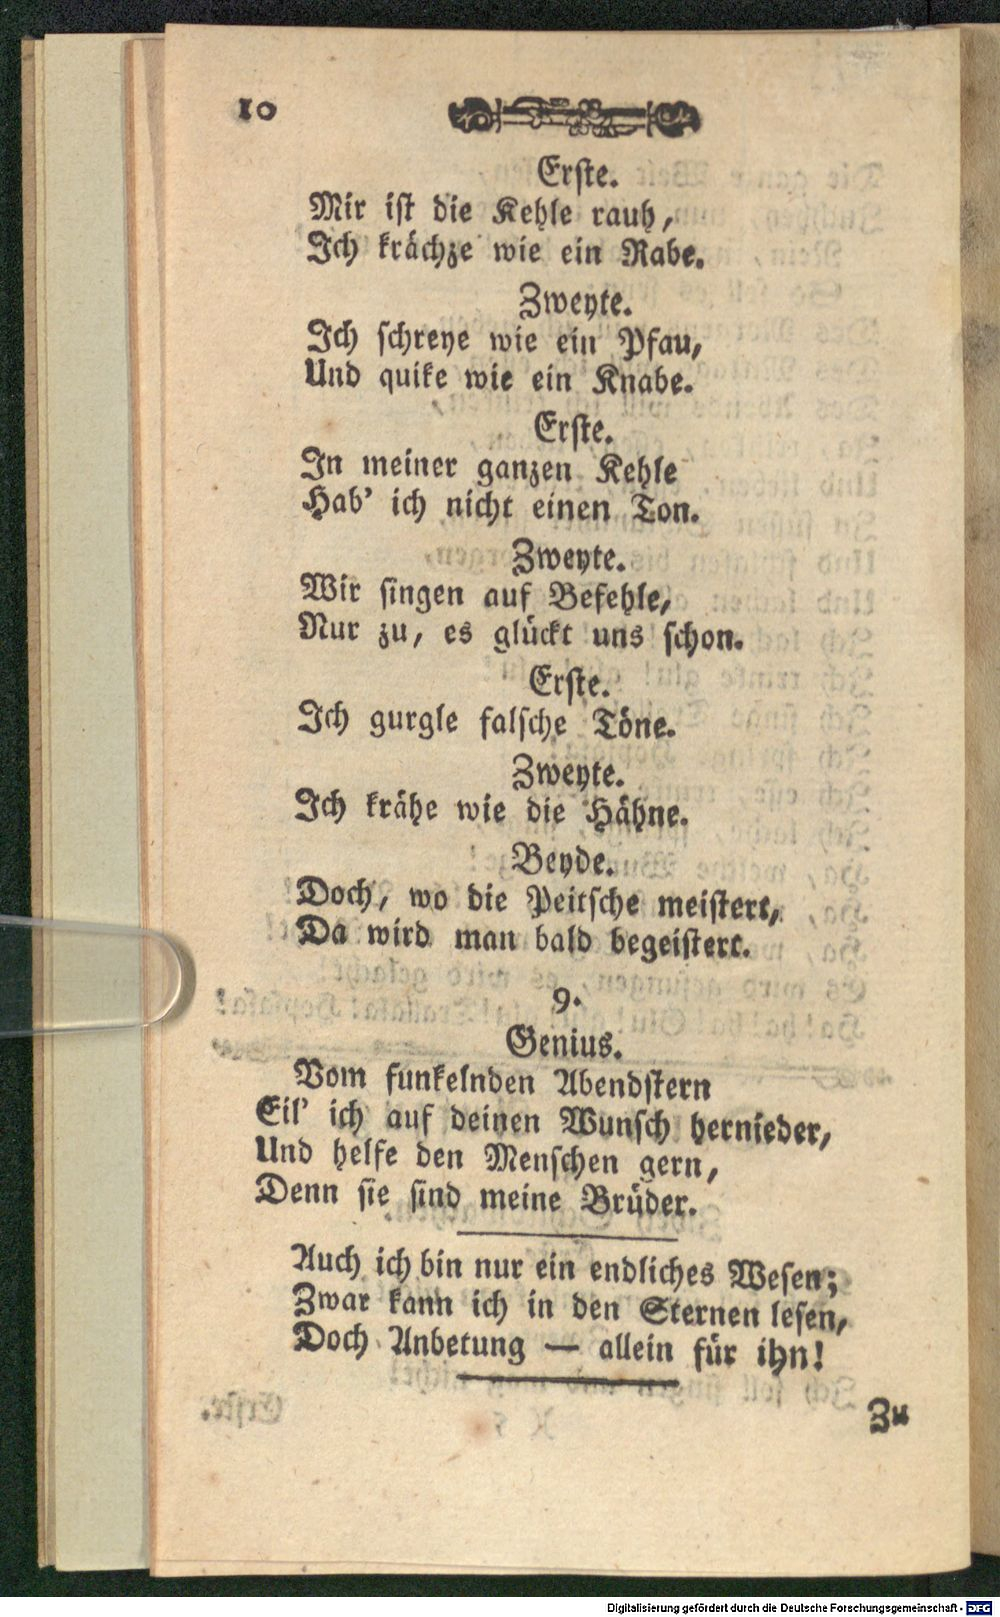 10
Erste.
Mir ist die Kehle rauh,
Ich krächze wie ein Rabe.
Zweyte.
Ich schreye wie ein Pfau,
Und quike wie ein Knabe.
Erste.
In meiner ganzen Kehle
Hab' ich nicht einen Ton.
Zweyte.
Wir singen auf Befehle,
Nur zu, es glückt uns schon.
Erste.
Ich gurgle falsche Töne.
Zweyte.
Ich krähe wie die Hähne.
Beyde.
Doch, wo die Peitsche meistert,
Da wird man bald begeistert.
9.
Genius.
Vom funkelnden Abendstern
Eil' ich auf deinen Wunsch hernieder,
Und helfe den Menschen gern,
Denn sie sind meine Brüder.
Auch ich bin nur ein endliches Wesen;
Zwar kann ich in den Sternen lesen,
Doch Anbetung — allein für ihn!
Zu
Digitalisierung gefördert durch die Deutsche Forschungsgemeinschaft - DFG